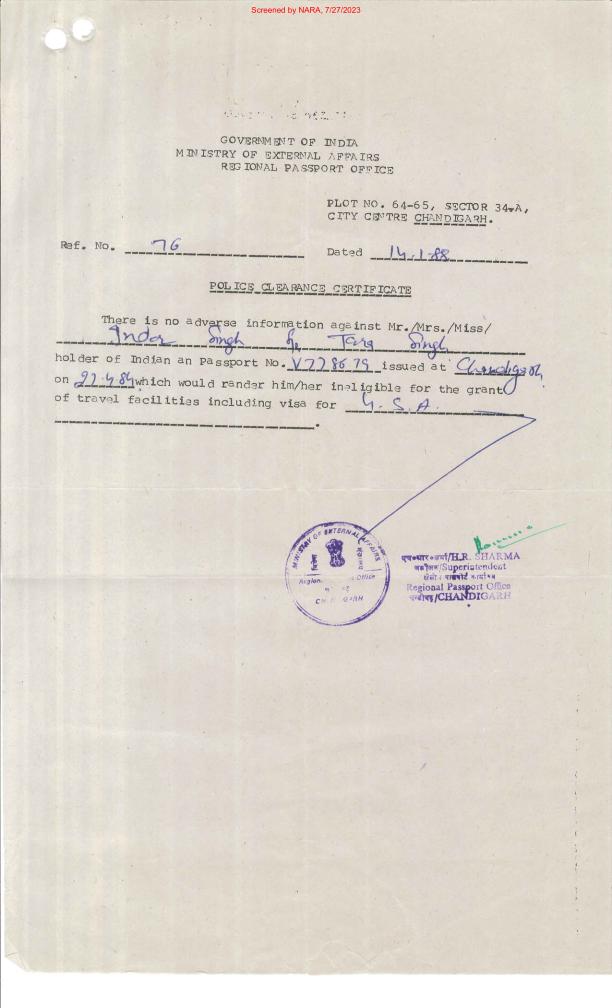 Screened by NARA, 7/27/2023
GOVERNMENT OF INDIA
MINISTRY OF EXTERNAL AFFAIRS
REGIONAL PASSPORT OFFICE
PLOT NO. 64-65, SECTOR 34-A,
CITY CENTRE CHANDIGARH.
Ref. No. 76
Dated 14.1.88
POLICE CLEARANCE CERTIFICATE
There is no adverse information against Mr./Mrs./Miss/
Inder Singh S/o Tara Singh
holder of Indian an Passport No. V778679 issued at Chandigarh
on 27.4.84 which would rander him/her ineligible for the grant
of travel facilities including visa for U.S.A.
MINISTRY OF EXTERNAL AFFAIRS
Regional Office
CHANDIGARH
एच०आर०शर्मा/H.R. SHARMA
अधीक्षक/Superintendent
क्षेत्रीय पासपोर्ट कार्यालय
Regional Passport Office
चण्डीगढ़/CHANDIGARH